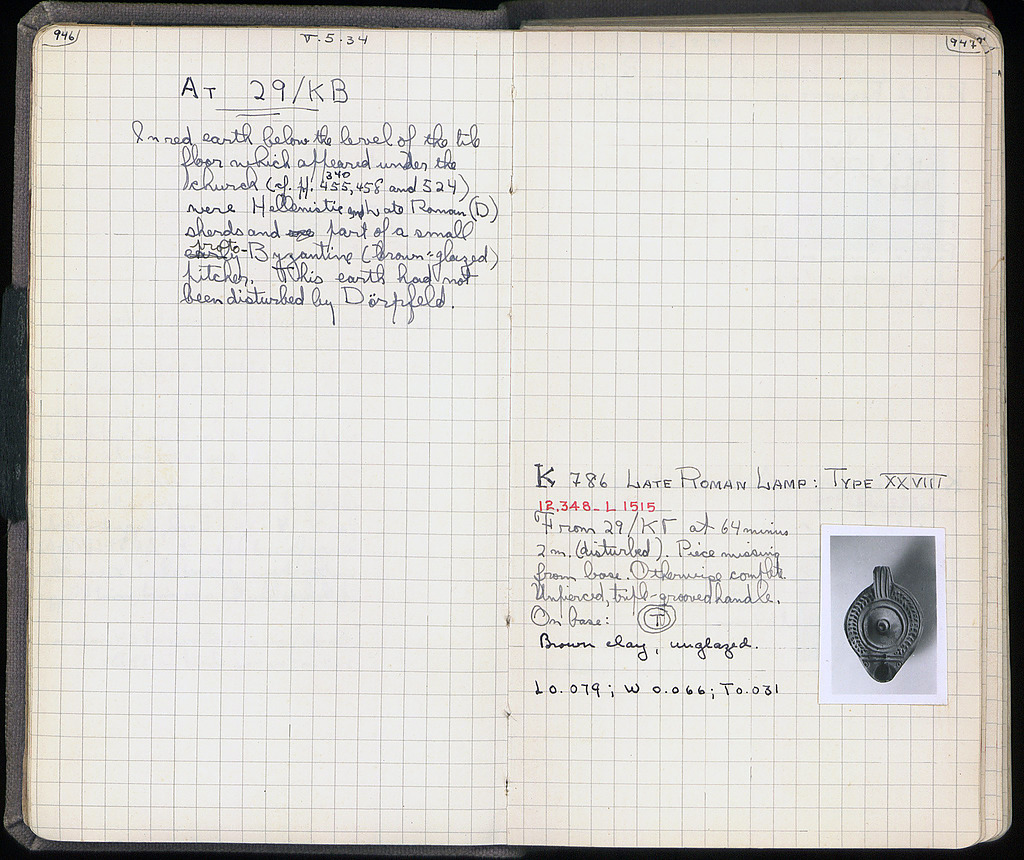 946
V.5.34
AT 29/KB
In red earth below the level of the tile
floor which appeared under the
340
church (cf. pp. 455, 458 and 524)
were Hellenistic and Late Roman (D)
sherds and part of a small
proto
early-Byzantine (brown-glazed)
pitcher. This earth had not
been disturbed by Dörpfeld.
947
K 786 LATE ROMAN LAMP: TYPE XXVIII
12.348 - L 1515
From 29/KΓ at 64 minus
2 m. (disturbed). Piece missing
from base. Otherwise complete.
Unpierced, triple-grooved handle.
On base: T
Brown clay, unglazed.
L 0.079; W 0.066; T 0.031